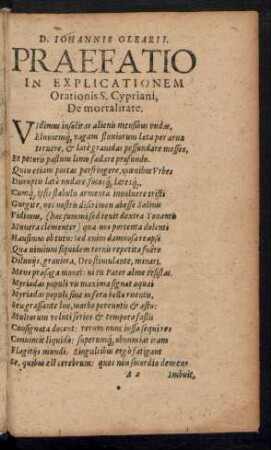 D. IOHANNIS OLEARII.
PRAEFATIO
IN EXPLICATIONEM
Orationis S. Cypriani,
De mortalitate.
VIdimus insolitas alienis mensibus undas,
Eluviemq́; vagam fluviorum lata per arva
Ferverе, & latè gravidas pessundare messes,
Et pecoris pastum limo fœdare profundo.
Quin etiam portas perfringere, mœnibus Urbes
Diruptis latè nudare focosq́; laresq́;
Cumq́; ipsis stabulis armenta involvere tristi
Gurgite, nec nostris discrimen abesse Salinis
Vidimus, (has summi sed texit dextra Tonantis
Munera clementer) qua nos portenta dolenti
Hausimus obtutu: sed enim damnosa rapaxq́;
Qua nimium siquidem ternis repetita fuere
Diluviis, graviora, Deo stimulante, minari.
Mens præsaga monet: ni tu Pater alme resistas.
Myriadas populi vis maxima signat aquai
Myriadas populi sine infera bella ruentis,
Seu grassante lue, morbo pereuntis & æstu:
Multorum veluti serie & tempora fastis
Consignata docent: verum nunc jussa sequi res
Convincit liquidò: superumq́; obnunciat iram
Flagitiis mundi. Singultibus ergò fatigant
Se, quibus est cerebrum: quos non socordia demens
A 2 Imbuit,